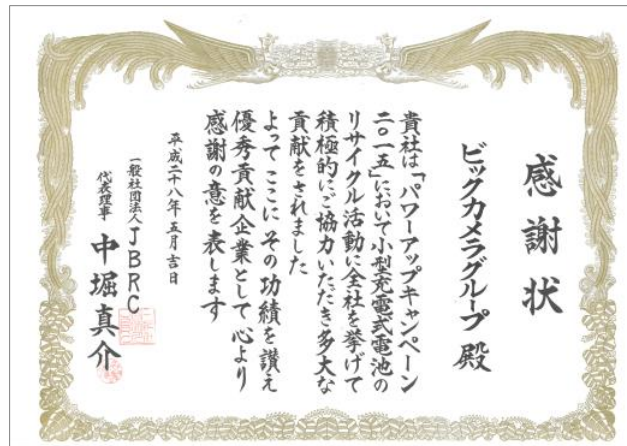 感謝状
ビックカメラグループ 殿
貴社は「パワーアップキャンペーン
二〇一五」において小型充電式電池の
リサイクル活動に全社を挙げて
積極的にご協力いただき多大な
貢献をされました
よって ここに その功績を讃え
優秀貢献企業として 心より
感謝の意を表します
平成二十八年五月吉日
一般社団法人JBRC
代表理事 中堀真介